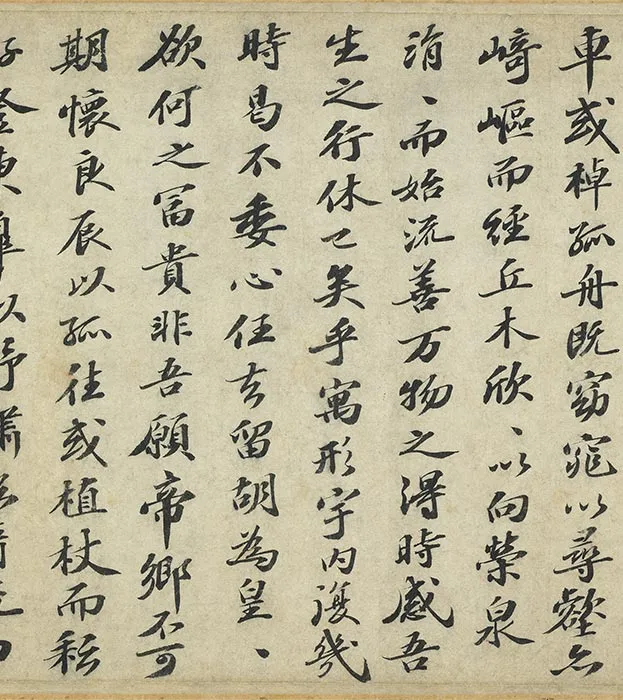 車或棹孤舟既窈窕以尋壑亦
崎嶇而經丘木欣、以向榮泉
涓、而始流善万物之得時感吾
生之行休已矣乎寓形宇内復幾
時曷不委心任去留胡為皇、
欲何之富貴非吾願帝鄉不可
期懷良辰以孤往或植杖而耘
登東皋以舒嘯